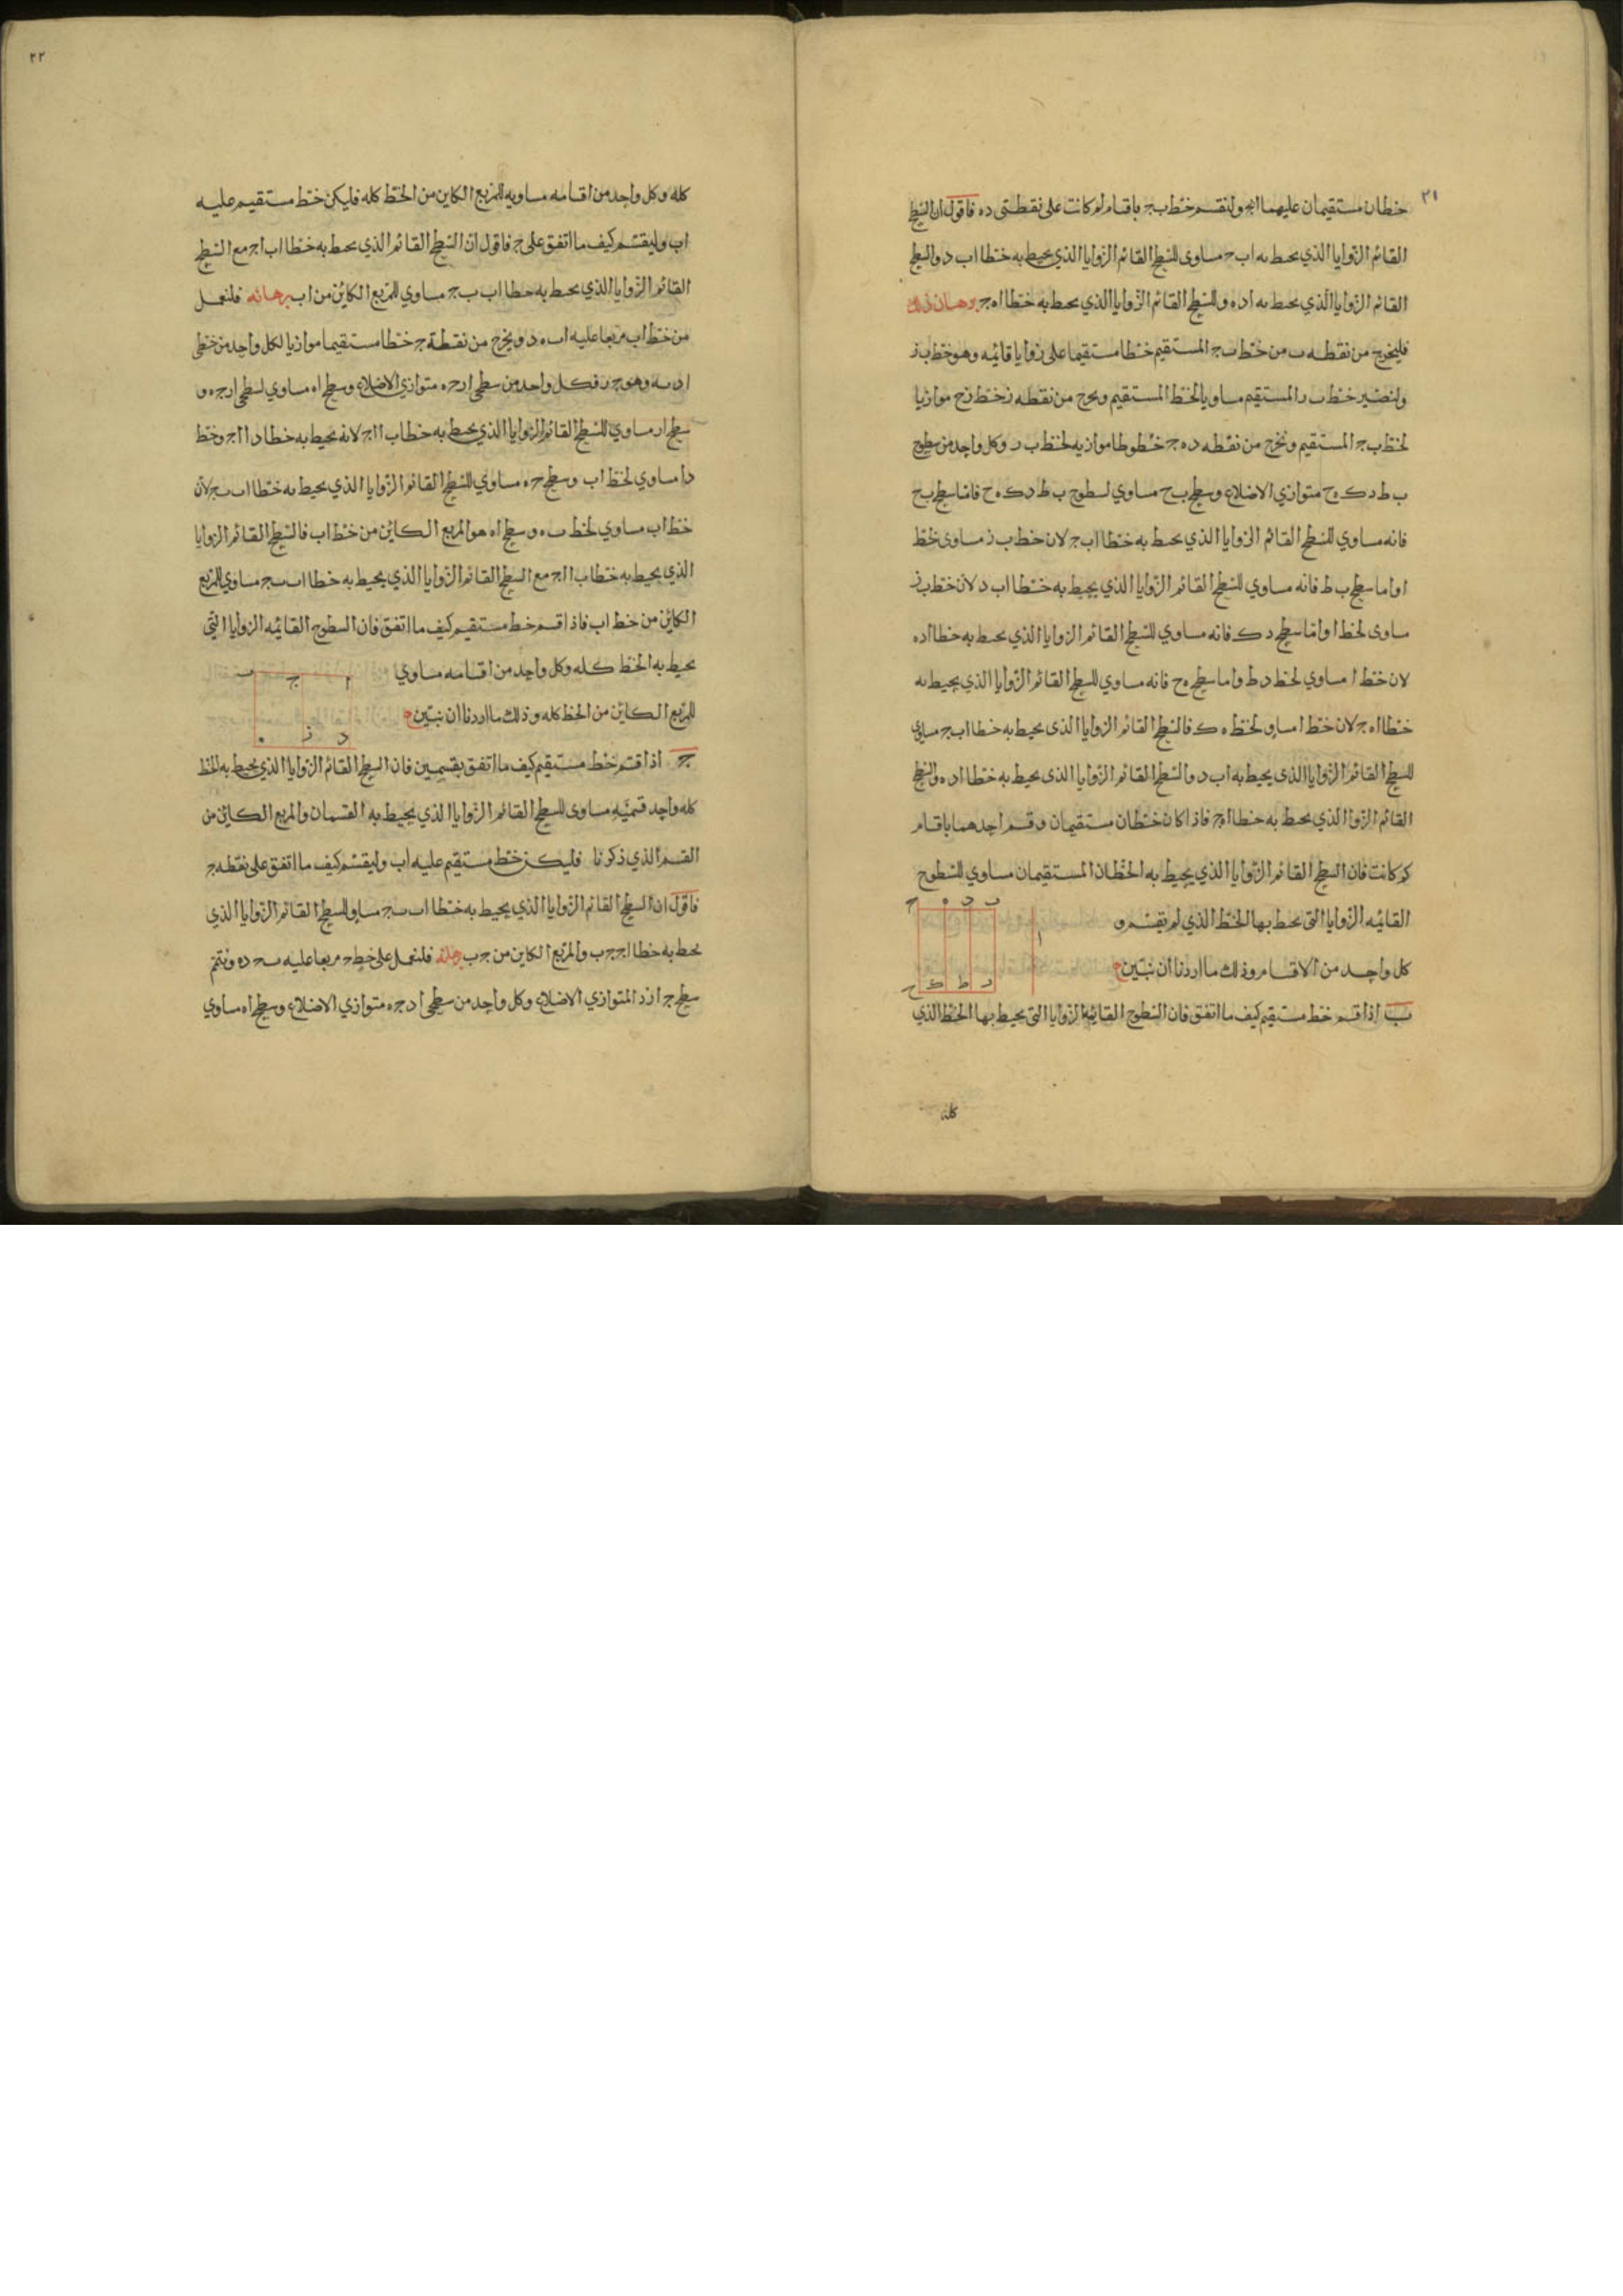 ٢١
خطان مستقيمان عليهما ا بج ولنقسم خط ب ج باقسام لم كانت على نقطتى د ه فاقول ان السطح
القائم الزوايا الذي يحيط به ا ب ج مساوى للسطح القائم الزوايا الذي يحيط به خطا ا ب د والسطح
القائم الزوايا الذي يحيط به ا د ه وللسطح القائم الزوايا الذي يحيط به خطا ا ه ج برهان ذلك
فليخرج من نقطه ب من خط ب ج المستقيم خطا مستقيما على زوايا قائمه وهو خط ب ز
ولنصير خط ب ز المستقيم مساويا لخط ا المستقيم ويخرج من نقطه ز خط زح موازيا
لخط ب ج المستقيم ونخرج من نقطه د ه ج خطوطا موازيه لخط ب ز وكل واحد من سطوح
ب ط د ك ه ح متوازي الاضلاع وسطح ب ح مساوي لسطوح ب ط د ك ه ح فاما سطح ب ح
فانه مساوي للسطح القائم الزوايا الذي يحيط به خطا ا ب ج لان خط ب ز مساوى لخط
ا واما سطح ب ط فانه مساوي للسطح القائم الزوايا الذي يحيط به خطا ا ب د لان خط ب ز
مساوى لخط ا واما سطح د ك فانه مساوي للسطح القائم الزوايا الذي يحيط به خطا ا د ه
لان خط ا مساوي لخط د ط واما سطح ه ح فانه مساوي للسطح القائم الزوايا الذي يحيط به
خطا ا ه ج لان خط ا مساو لخط ه ك فالسطح القائم الزوايا الذى يحيط به خطا ا ب ج مساوي
للسطح القائم الزوايا الذى يحيط به ا ب د والسطح القائم الزوايا الذى يحيط به خطا ا د ه والسطح
القائم الزوايا الذي يحيط به خطا ا ه ج فاذا كان خطان مستقيمان وقسم احدهما باقسام
كم كانت فان السطح القائم الزوايا الذي يحيط به الخطان المستقيمان مساوي للسطوح
القائمه الزوايا التى يحيط بها الخط الذي لم يقسم و
كل واحد من الاقسام وذلك ما اردنا ان نبين
ا ب د ه ج
ز ط ك ح
ب اذا قسم خط مستقيم كيف ما اتفق فان السطوح القائمة الزوايا التى يحيط بها الخط الذي
كله
٢٢
كله وكل واحد من اقسامه مساويه للمربع الكاين من الخط كله فليكن خط مستقيم عليه
ا ب وليقسم كيف ما اتفق على ج فاقول ان السطح القائم الذي يحيط به خطا ا ب ا ج مع السطح
القائم الزوايا الذي يحيط به خطا ا ب ب ج مساوي للمربع الكائن من ا ب برهانه فلنعمل
من خط ا ب مربعا عليه ا ب ه د ويخرج من نقطة ج خطا مستقيما موازيا لكل واحد من خطي
ا د ب ه وهو ج ز فكل واحد من سطحي ا ز ج ه متوازي الاضلاع وسطح ا ه مساوي لسطحي ا ز ج ه و
سطح ا ز مساوي للسطح القائم الزوايا الذي يحيط به خطا ب ا ا ج لانه يحيط به خطا د ا ا ج وخط
د ا مساوي لخط ا ب وسطح ج ه مساوي للسطح القائم الزوايا الذي يحيط به خطا ا ب ب ج لان
خط ا ب مساوي لخط ب ه وسطح ا ه هو المربع الكائن من خط ا ب فالسطح القائم الزوايا
الذي يحيط به خطا ب ا ا ج مع السطح القائم الزوايا الذي يحيط به خطا ا ب ب ج مساوي للمربع
الكائن من خط ا ب فاذا قسم خط مستقيم كيف ما اتفق فان السطوح القايمه الزوايا التي
يحيط به الخط كله وكل واحد من اقسامه مساوي
للمربع الكائن من الخط كله وذلك ما اردنا ان نبين
ا ج ب
د ز ه
ج اذا قسم خط مستقيم كيف ما اتفق بقسمين فان السطح القائم الزوايا الذي يحيط به الخط
كله واحد قسميه مساوى للسطح القائم الزوايا الذي يحيط به القسمان والمربع الكائن من
القسم الذي ذكرنا فليكن خط مستقيم عليه ا ب وليقسم كيف ما اتفق على نقطه ج
فاقول ان السطح القائم الزوايا الذي يحيط به خطا ا ب ب ج مساو للسطح القائم الزوايا الذي
يحيط به خطا ا ج ج ب والمربع الكاين من ج ب برهانه فلنعمل على خط ج مربعا عليه ب ج د ه ونتمم
سطح ج ا ز د المتوازي الاضلاع وكل واحد من سطحي ا د ج ه متوازي الاضلاع وسطح ا ه مساوي